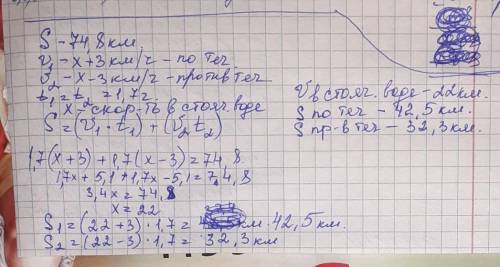 S - 74,8 км
V₁ - х+3 км/ч - по теч
V₂ - х-3 км/ч - против теч
t₁ = t₂ = 1,7 г.
х - скор-ть в стояч. воде
S = (V₁ · t₁) + (V₂ t₂)
1,7(х+3) + 1,7(х-3) = 74,8
1,7х + 5,1 + 1,7х - 5,1 = 74,8
3,4х = 74,8
х = 22
S₁ = (22+3) · 1,7 = км. 42,5 км.
S₂ = (22-3) · 1,7 = 32,3 км
V в стояч. воде - 22км.
S по теч - 42,5 км.
S пр-в теч - 32,3 км.